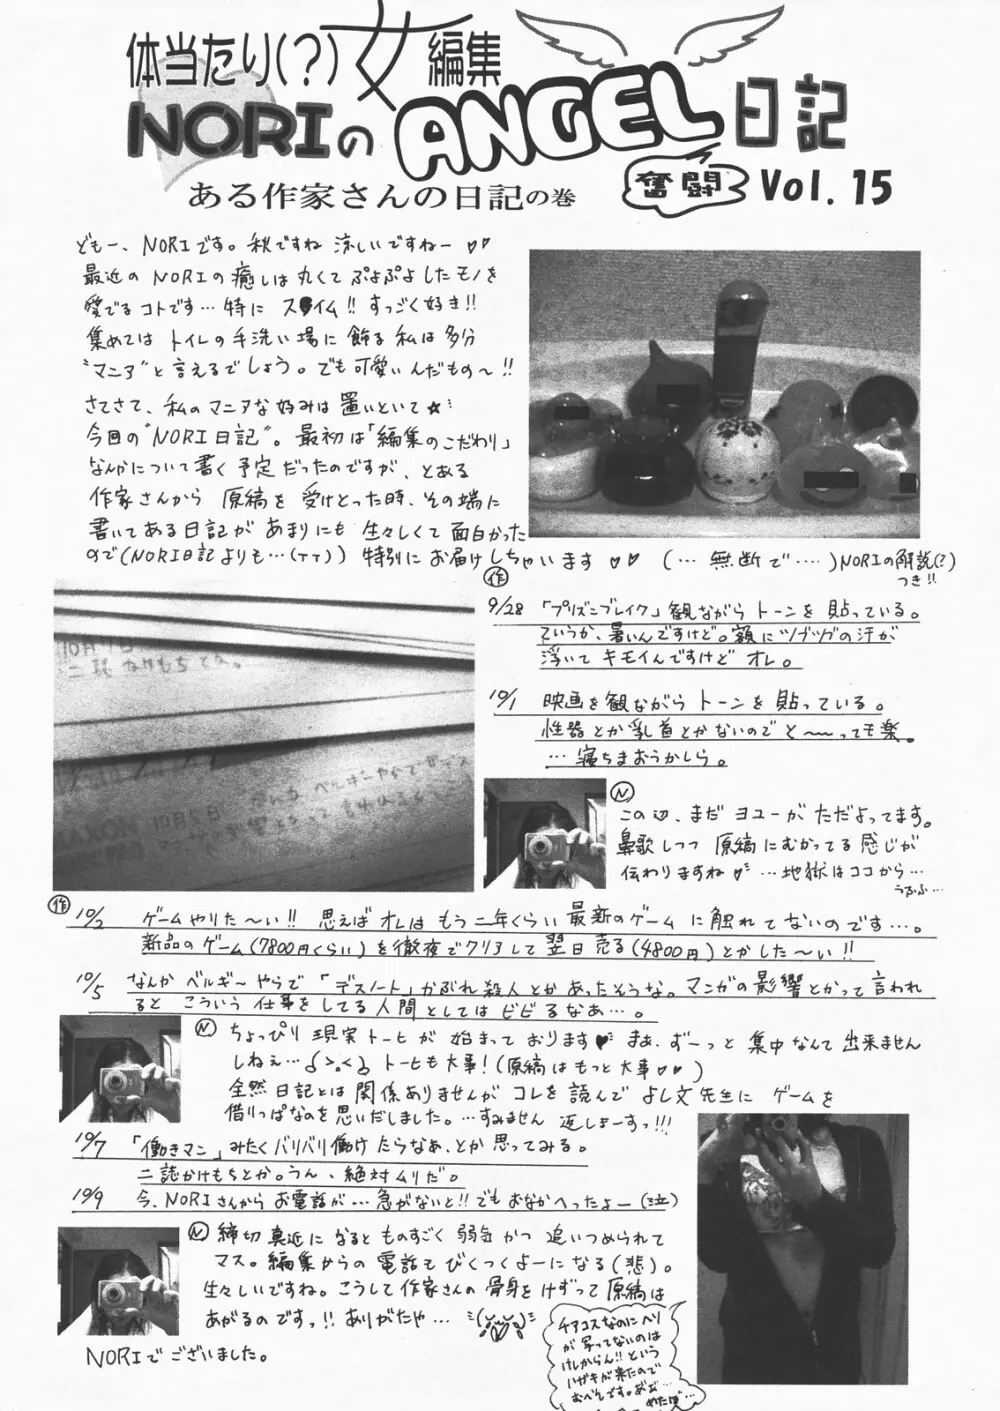 体当たり(?)女編集
NORIのANGEL日記
奮闘
Vol. 15
ある作家さんの日記の巻
どもー、NORIです。秋ですね 涼しいですねー♡♡
最近の NORIの癒しは丸くて ぷよぷよしたモノを
愛でるコトです…特に ス●イム!! すっごく好き!!
集めては トイレの手洗い場に 飾る私は多分
"マニア"と言えるでしょう。でも可愛いんだもの〜!!
さてさて、私のマニアな好みは置いといて☆ミ
今回の"NORI日記"。最初は「編集のこだわり」
なんかについて書く予定だったのですが、とある
作家さんから 原稿を受けとった時、その端に
書いてある日記が あまりにも 生々しくて面白かった
ので(NORI日記よりも…(TT)) 特別にお届けしちゃいます♡♡ (…無断で‥‥)NORIの解説(?)
つき!!
作
9/28 「プリズンブレイク」観ながらトーンを貼っている。
ていうか、暑いんですけど。額にツブツブの汗が
浮いてキモイんですけど オレ。
10/1 映画を観ながらトーンを貼っている。
性器とか乳首とかないのでと〜〜っても楽。
…寝ちまおうかしら。
10月
二誌かけもちとな。
なんか ベルギーやらでデス
MAXON 10月5日
N
この辺、まだ ヨユーが ただよってます。
鼻歌しつつ 原稿にむかってる感じが
伝わりますね♡ …地獄はココから…
うふふ…
作
10/2 ゲームやりた〜い!! 思えばオレはもう二年くらい最新のゲームに触れてないのです…。
新品のゲーム(7800円くらい)を徹夜でクリアして翌日売る(4800円)とかした〜い!!
10/5 なんか ベルギーやらで「デスノート」かぶれ殺人とかあったそうな。マンガの影響とかって言われ
ると こういう仕事をしてる人間としてはビビるなぁ…。
N ちょっぴり現実トーヒが始まっております♡ミ まぁ、ずーっと集中なんて出来ません
しねぇ… トーヒも大事!(原稿はもっと大事♡♡)
全然日記とは関係ありませんがコレを読んで よし文先生に ゲームを
借りっぱなのを思いだしました。…すみません 返しまーすっ!!!
10/7 「働きマン」みたくバリバリ働けたらなぁ、とか思ってみる。
二誌かけもちとか。うん、絶対ムリだ。
10/9 今、NORIさんからお電話が…急がないと!! でもおなかへったよー(泣)
N 締切真近になるとものすごく弱気かつ追いつめられて
マス。編集からの電話でびくつくよーになる(悲)。
生々しいですね。こうして作家さんの骨身をけずって原稿は
あがるのですっ!! ありがたや…
NORIでございました。
チアコスなのにヘソ
が写ってないのは
けしからん!! という
ハガキが来たので